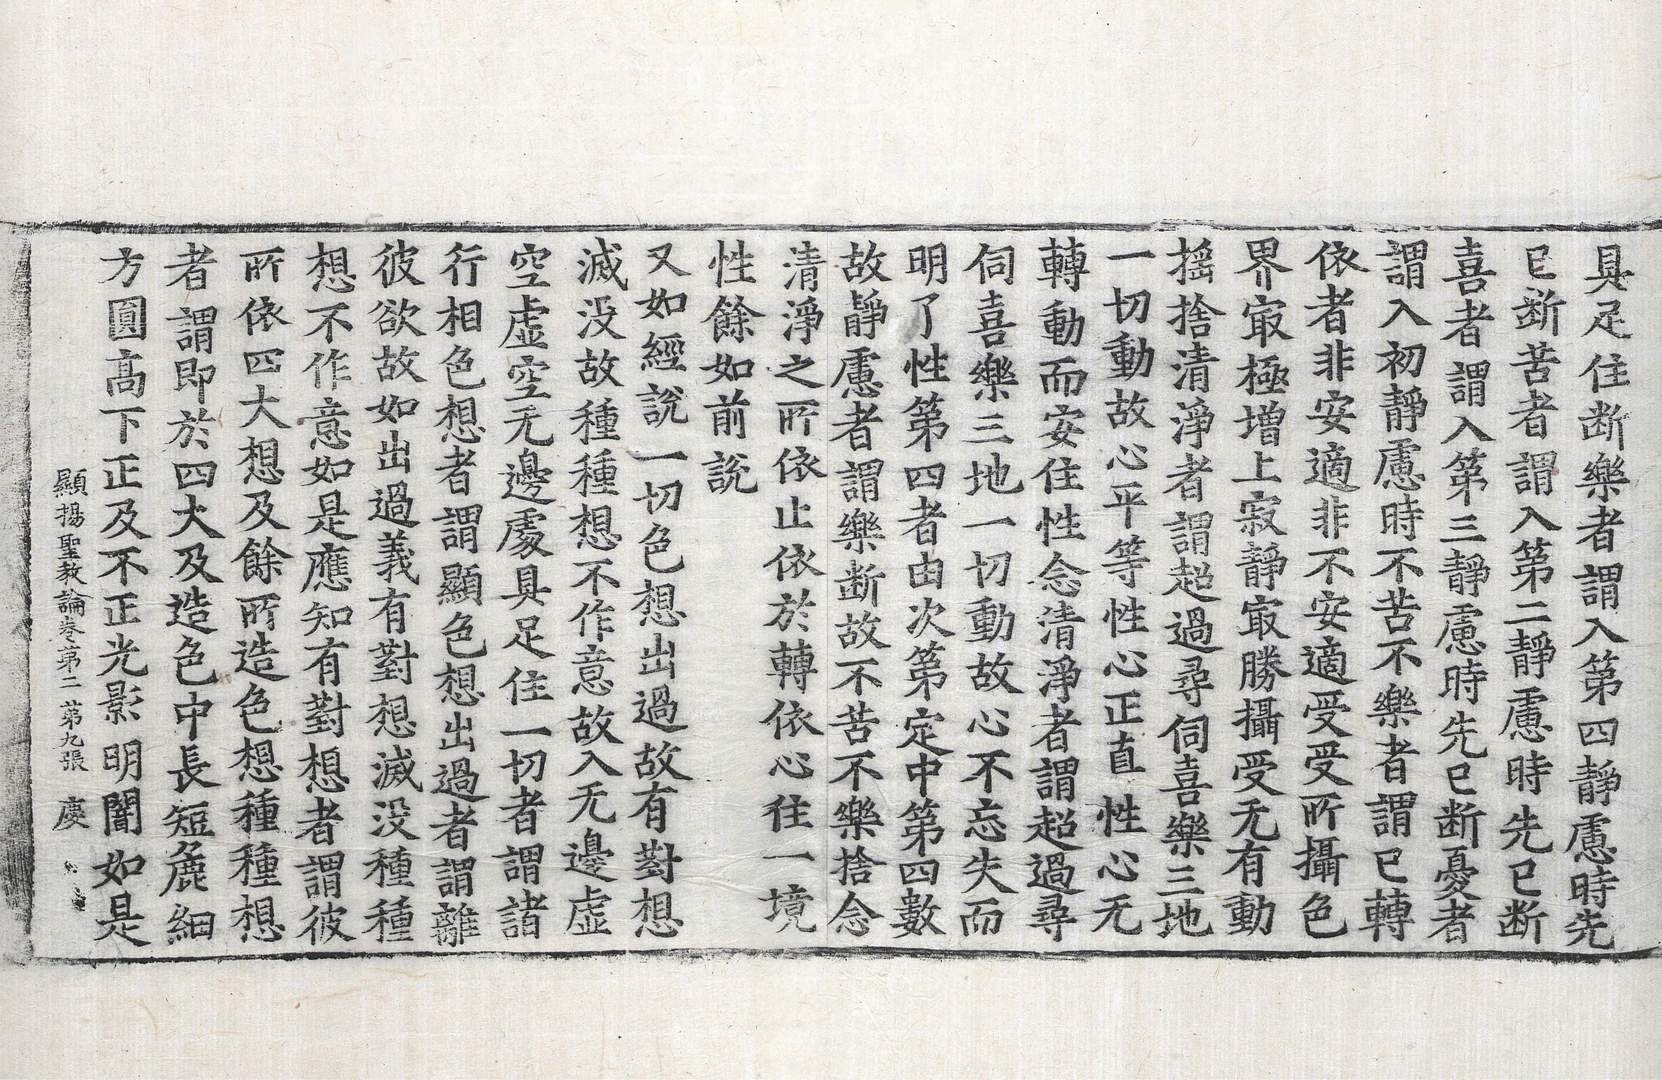 具足住断樂者謂入第四靜慮時先
已断苦者謂入第二靜慮時先已断
喜者謂入第三靜慮時先已断憂者
謂入初靜慮時不苦不樂者謂已轉
依者非安適非不安適受受所攝色
界㝡極增上寂靜㝡勝攝受无有動
搖捨清淨者謂超過尋伺喜樂三地
一切動故心平等性心正直性心无
轉動而安住性念清淨者謂超過尋
伺喜樂三地一切動故心不忘失而
明了性第四者由次第定中第四數
故靜慮者謂樂断故不苦不樂捨念
清淨之所依止依於轉依心住一境
性餘如前說
又如經說一切色想出過故有對想
滅没故種種想不作意故入无邊虛
空虛空无邊處具足住一切者謂諸
行相色想者謂顯色想出過者謂離
彼欲故如出過義有對想滅没種種
想不作意如是應知有對想者謂彼
所依四大想及餘所造色想種種想
者謂即於四大及造色中長短麁細
方圓高下正及不正光影明闇如是
顯揚聖教論卷第二 第九張 慶